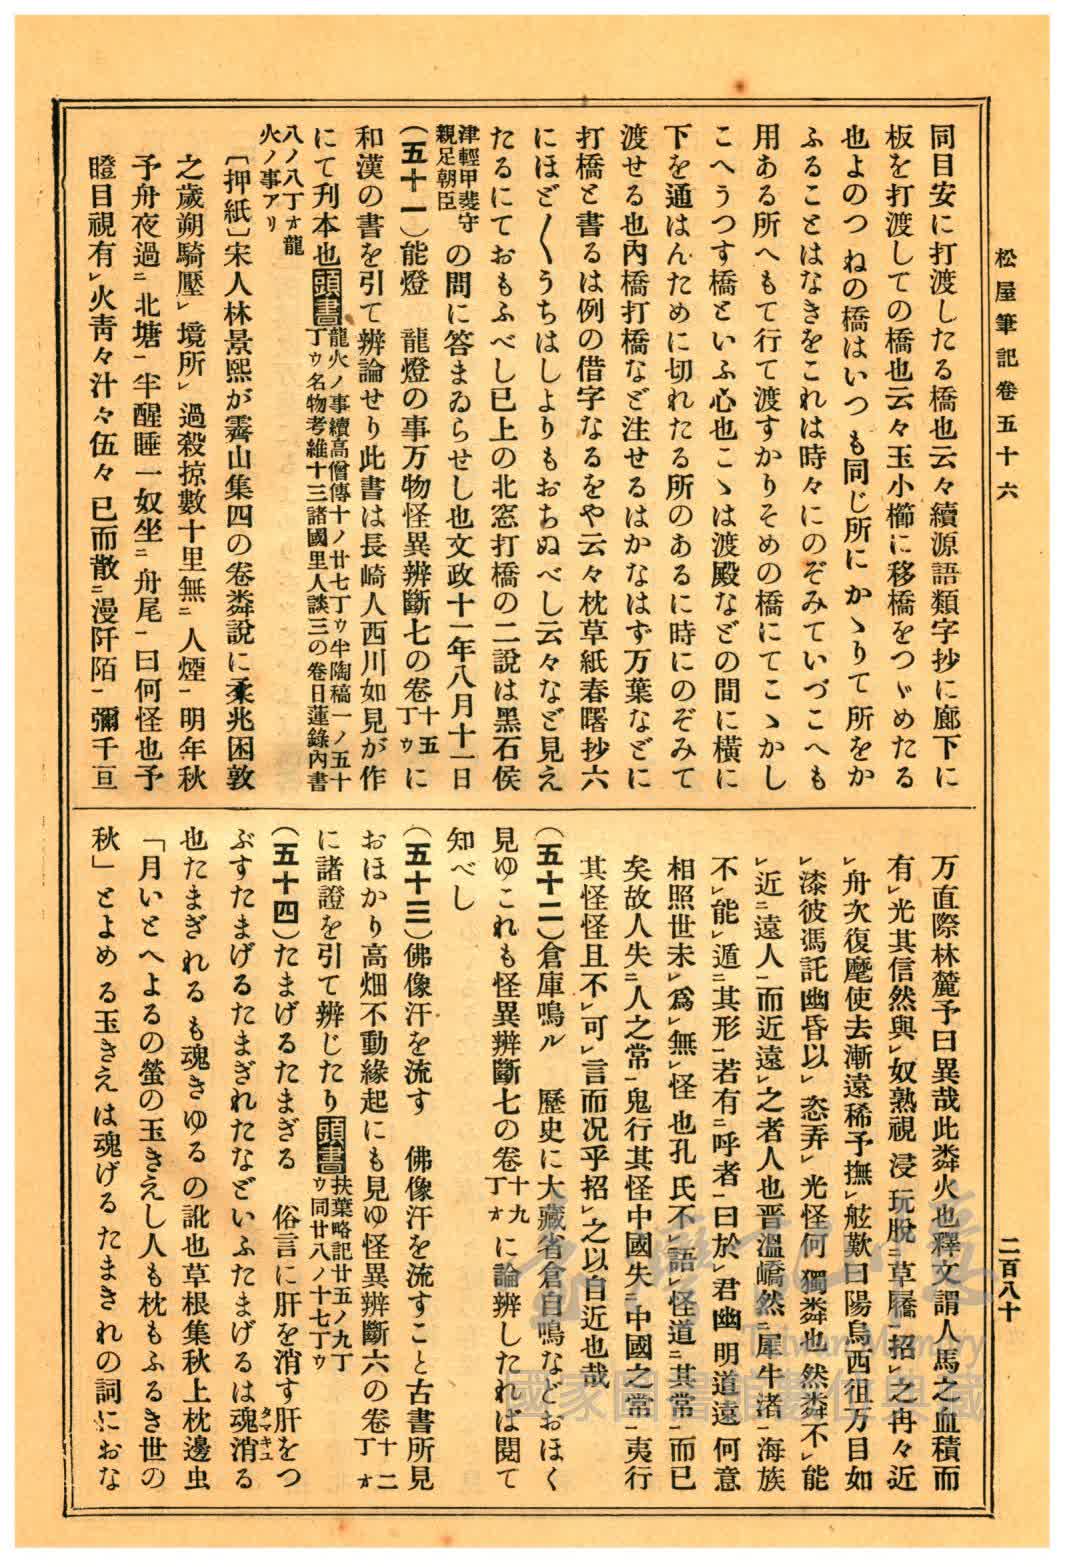 松屋筆記卷五十六
二百八十
同目安に打渡したる橋也云々續源語類字抄に廊下に
板を打渡しての橋也云々玉小櫛に移橋をつゞめたる
也よのつねの橋はいつも同じ所にかゝりて所をか
ふることはなきをこれは時々にのぞみていづこへも
用ある所へもて行て渡すかりそめの橋にてこゝかし
こへうつす橋といふ心也こゝは渡殿などの間に橫に
下を通はんために切れたる所のあるに時にのぞみて
渡せる也內橋打橋など注せるはかなはず万葉などに
打橋と書るは例の借字なるをや云々枕草紙春曙抄六
にほど〱うちはしよりもおちぬべし云々など見え
たるにておもふべし已上の北窓打橋の二說は黑石侯
津輕甲斐守
親足朝臣の問に答まゐらせし也文政十一年八月十一日
(五十一)能燈　龍燈の事万物怪異辨斷七の卷十五丁ウに
和漢の書を引て辨論せり此書は長崎人西川如見が作
にて刋本也頭書龍火ノ事續高僧傳十ノ廿七丁ウ半陶稿一ノ五十
丁ウ名物考維十三諸國里人談三の卷日蓮錄內書
八ノ八丁オ龍
火ノ事アリ
〔押紙〕宋人林景熙が霽山集四の卷粦說に柔兆困敦
之歲朔騎壓レ境所レ過殺掠數十里無二人煙一明年秋
予舟夜過二北塘一半醒睡一奴坐二舟尾一曰何怪也予
瞪目視有レ火靑々汁々伍々已而散二漫阡陌一彌千亘
万直際林麓予曰異哉此粦火也釋文謂人馬之血積而
有レ光其信然與レ奴熟視浸玩脫二草屩一招レ之冉々近
レ舟次復麾使去漸遠稀予撫レ舷歎曰陽烏西徂万目如
レ漆彼馮託幽昏以レ恣弄レ光怪何獨粦也然粦不レ能
レ近二遠人一而近遠レ之者人也晋溫嶠然二犀牛渚一海族
不レ能レ遁二其形一若有二呼者一曰於レ君幽明道遠何意
相照世未レ爲レ無レ怪也孔氏不レ語レ怪道二其常一而已
矣故人失二人之常一鬼行其怪中國失二中國之常一夷行
其怪怪且不レ可レ言而况乎招レ之以自近也哉
(五十二)倉庫鳴ル　歷史に大藏省倉自鳴などおほく
見ゆこれも怪異辨斷七の卷十九丁オに論辨したれは閱て
知べし
(五十三)佛像汗を流す　佛像汗を流すこと古書所見
おほかり高畑不動緣起にも見ゆ怪異辨斷六の卷十二丁オ
に諸證を引て辨じたり頭書扶葉略記廿五ノ九丁
ウ同廿八ノ十七丁ウ
(五十四)たまげるたまぎる　俗言に肝を消す肝をつ
ぶすたまげるたまぎれたなどいふたまげるは魂消タマキユる
也たまぎれるも魂きゆるの訛也草根集秋上枕邊虫
「月いとへよるの螢の玉きえし人も枕もふるき世の
秋」とよめる玉きえは魂げるたまきれの詞におな
Taiwan Memory
國家圖書館數位典藏